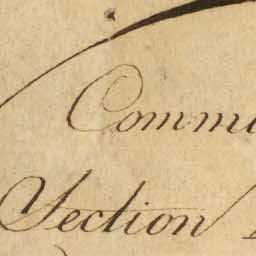 Commu
Section